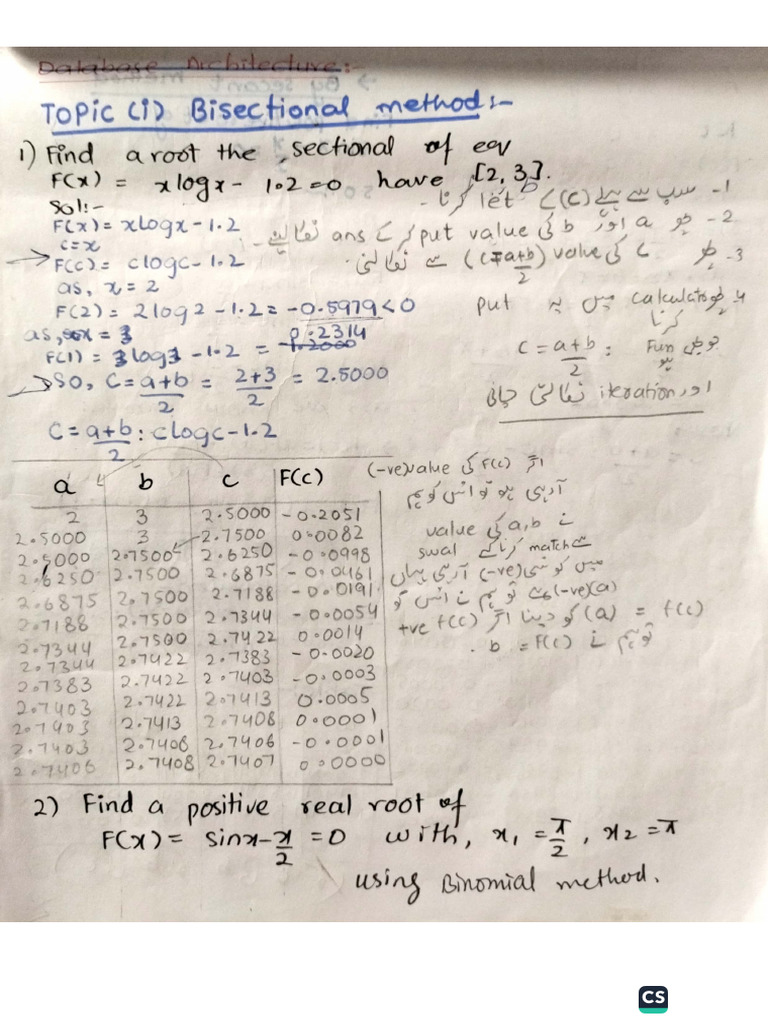 Database Architecture:-
Topic (1) Bisectional method:-
1) Find a root the sectional of eqv
F(x) = xlogx - 1.2 = 0 have [2, 3].
Sol:-
F(x) = xlogx - 1.2
c = x
F(c) = clogc - 1.2
as, x = 2
F(2) = 2log2 - 1.2 = -0.5979 < 0
as, x = 3
0.2314
F(1) = 3log3 - 1.2 = -1.2000
So, C = a+b/2 = 2+3/2 = 2.5000
C = a+b/2 : clogc - 1.2
1- سب سے پہلے (c) کے let کرنا -
2- پھر a اور b کی put value کر کے ans نکالنے -
3- پھر C کی value (C=a+b/2) سے نکالنی .
4- پھر calculator میں یہ put
کرنا
C = a+b/2 : Fun جو بھی
ہو
اور iteration نکالتی جانی
a b c F(c)
2 3 2.5000 -0.2051
2.5000 3 2.7500 0.0082
2.5000 2.7500 2.6250 -0.0998
2.6250 2.7500 2.6875 -0.0461
2.6875 2.7500 2.7188 -0.0191
2.7188 2.7500 2.7344 -0.0054
2.7344 2.7500 2.7422 0.0014
2.7344 2.7422 2.7383 -0.0020
2.7383 2.7422 2.7403 -0.0003
2.7403 2.7422 2.7413 0.0005
2.7403 2.7413 2.7408 0.0001
2.7403 2.7408 2.7406 -0.0001
2.7406 2.7408 2.7407 0.0000
اگر F(c) کی value(-ve)
آرہی ہو تو اس کو ہم
نے a,b کی value
سے match کرنا کے swal
میں کونسی (-ve) آرہی یہاں
(a)(-ve) ہے تو ہم نے اس کو
(a) = f(c) کو دینا اگر f(c) +ve
تو ہم نے b = F(c) .
2) Find a positive real root of
F(x) = sinx - x/2 = 0 with, x₁ = π/2, x₂ = π
using Binomial method.
CS